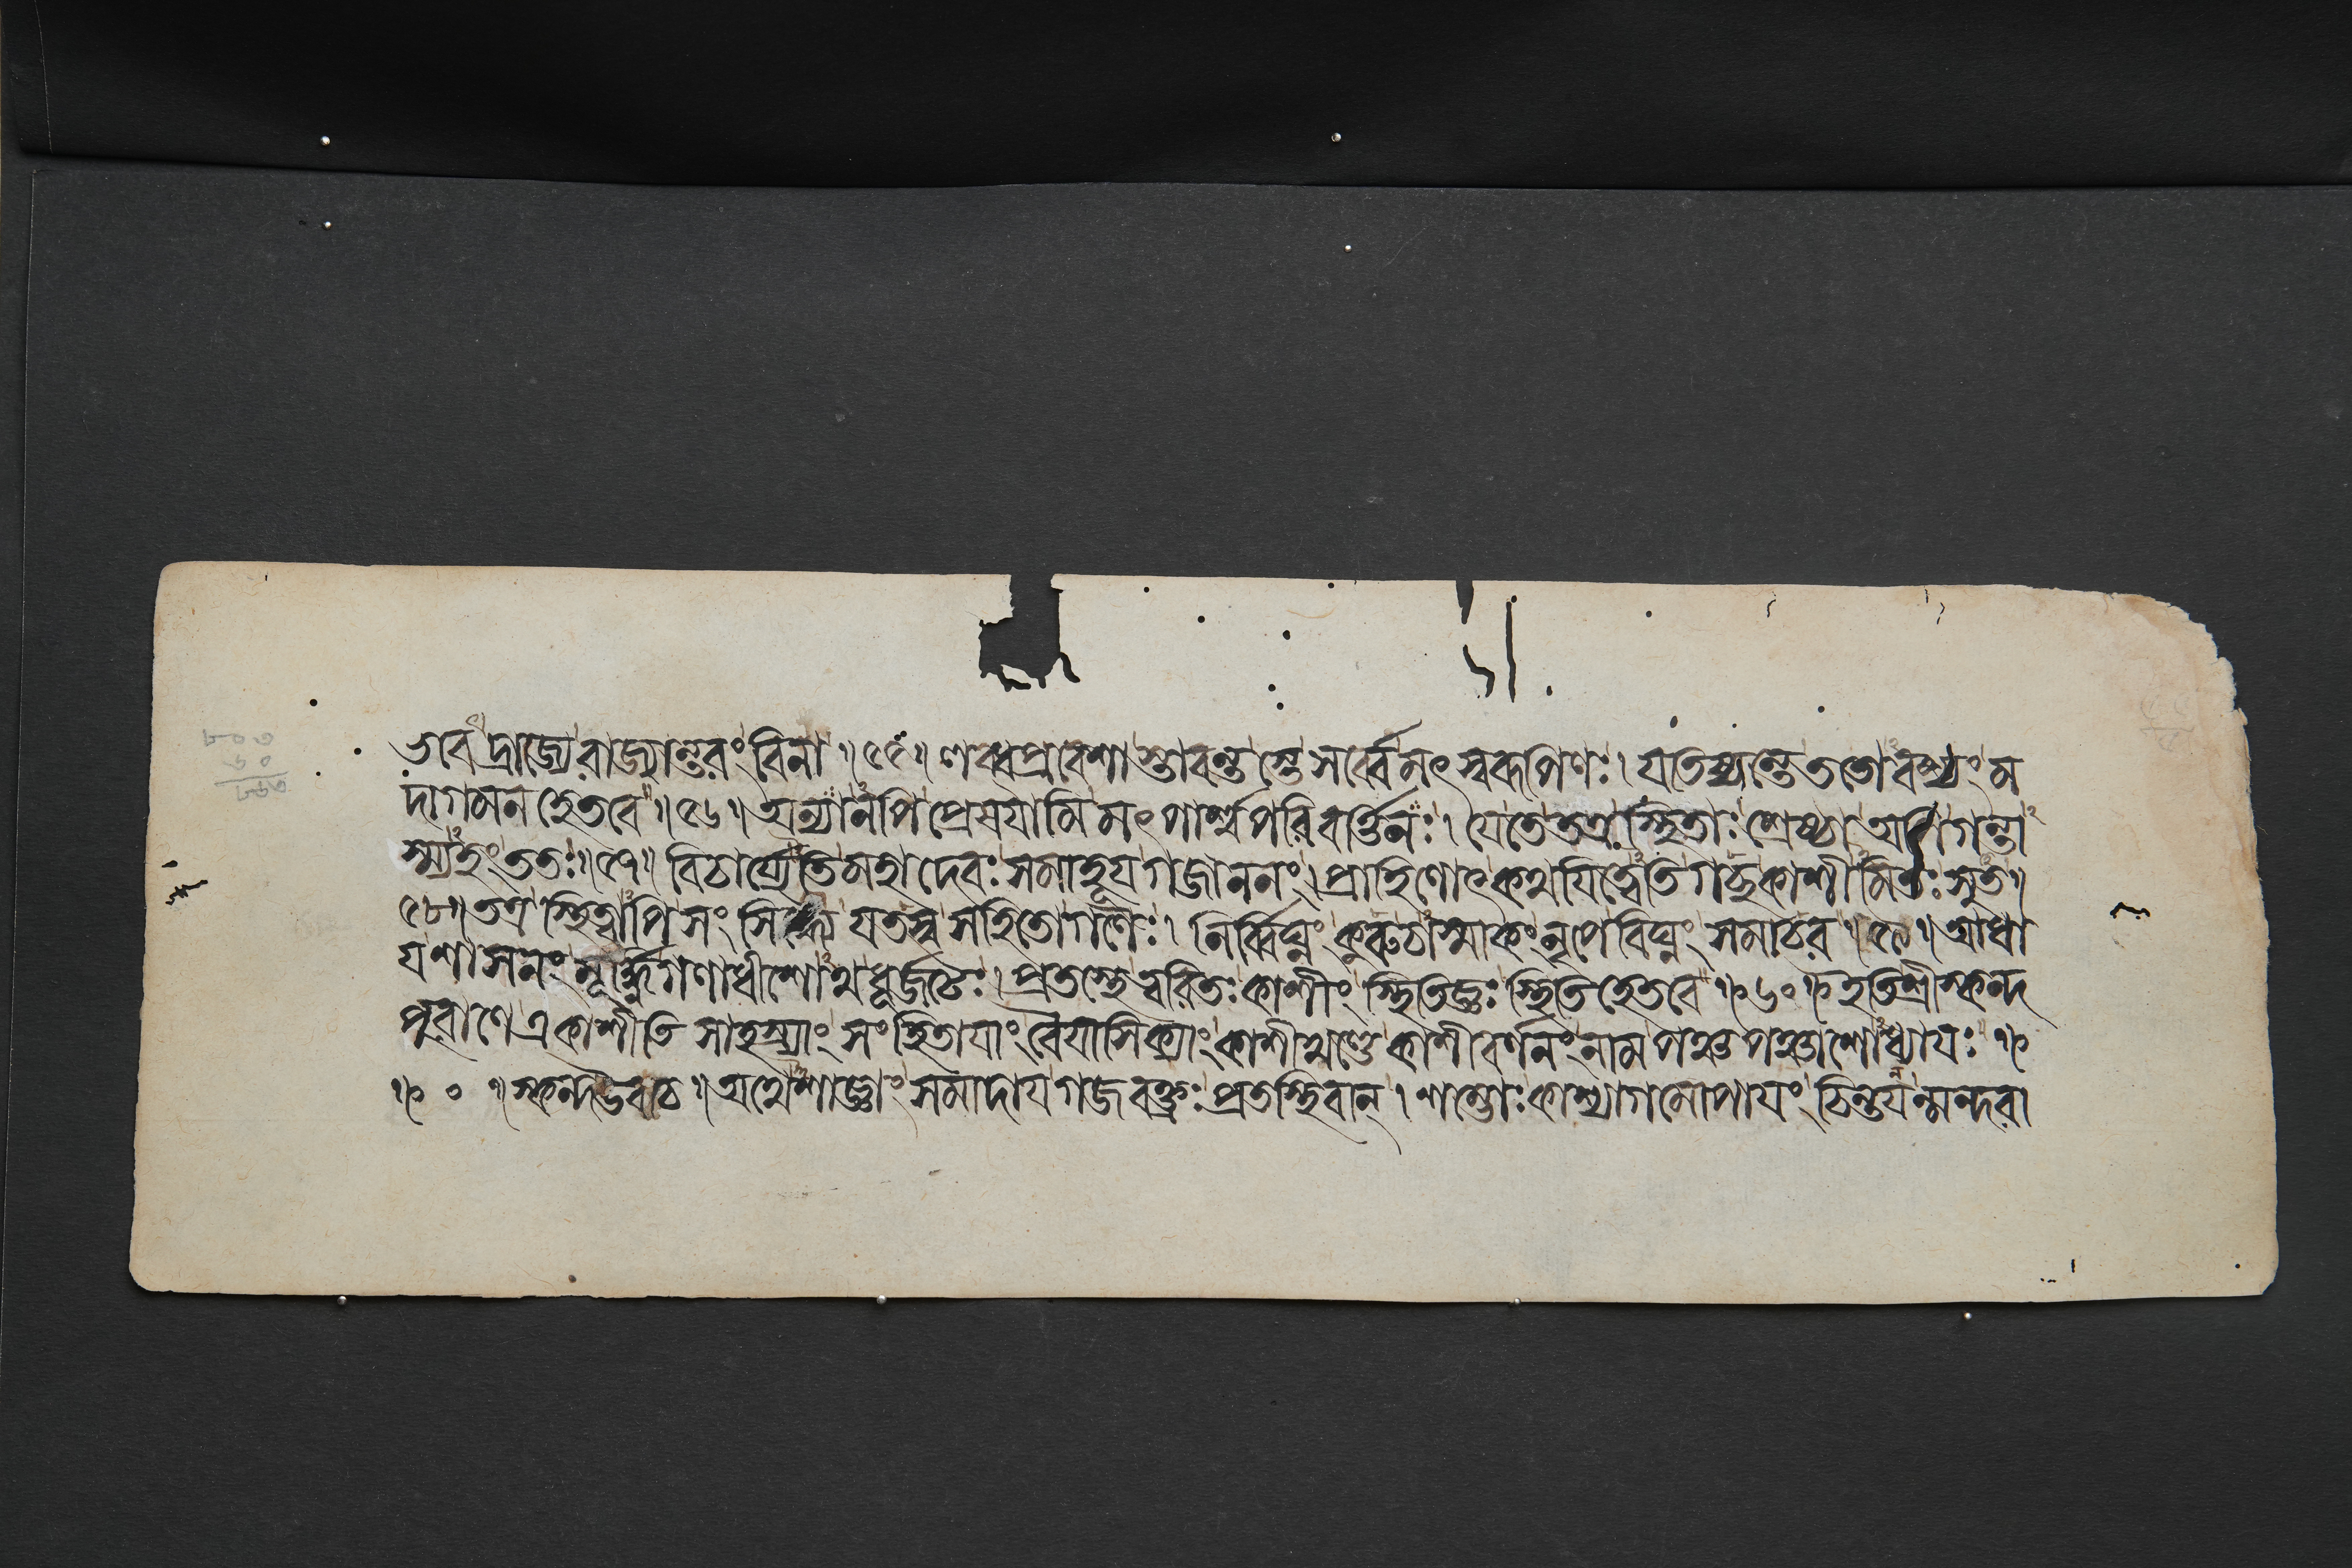 ভবদ্রাজ্যে রাজ্যান্তরং বিনা ॥ ৫৫ ॥ লব্ধপ্রবেশাস্তাবন্তস্তে সর্ব্বে মৎস্বরূপিণঃ । যতিষ্যন্তে ততোঽবশ্যং ম
দাগমনহেতবে ॥ ৫৬ ॥ অন্যানপি প্রেষয়ামি মৎপার্শ্বপরিবর্ত্তিনঃ । যে তে তত্র স্থিতাঃ শ্রেষ্ঠা অপি গন্তা
স্ম্যহং ততঃ ॥ ৫৭ ॥ বিচার্য্যেতি মহাদেবঃ সমাহূয় গজাননং । প্রাহিণোৎ কথয়িত্বেতি গচ্ছ কাশীমিতঃ সুত ॥
৫৮ ॥ তত্র স্থিত্বাপি সংসিদ্ধ্যৈ যতস্ব সহিতো গণৈঃ । নির্ব্বিঘ্নং কুরু চাস্মাকং নৃপে বিঘ্নং সমাচর ॥ ৫৯ ॥ আধা
য় শাসনং মূর্দ্ধ্নি গণাধীশোঽথ ধূর্জটেঃ । প্রতস্থে ত্বরিতঃ কাশীং স্থিতিজ্ঞঃ স্থিতিহেতবে ॥ ৬০ ॥ ইতি শ্রীস্কন্দ
পুরাণে একাশীতিসাহস্র্যাং সংহিতায়াং বৈয়াসিক্যাং কাশীখণ্ডে কাশীবর্ণনং নাম পঞ্চপঞ্চাশোঽধ্যায়ঃ ॥
॥ ০ ॥ স্কন্দ উবাচ ॥ অথেশাজ্ঞাং সমাদায় গজবক্ত্রঃ প্রতস্থিবান্ । শম্ভোঃ কাশ্যাগমোপায়ং চিন্তয়ন্মন্দরা